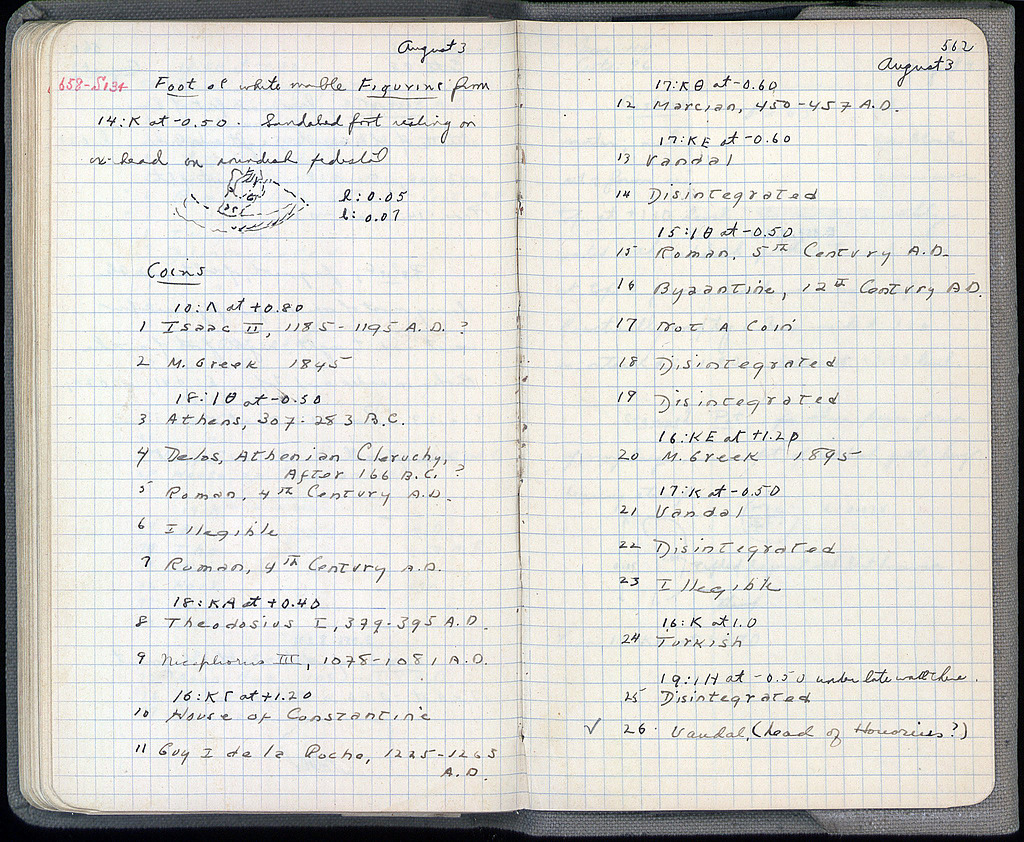 August 3
658-S134 Foot of white marble Figurine from
14:K at -0.50. Sandaled foot resting on
ox-head on roundish pedestal
h: 0.05
l: 0.07
Coins
10:Λ at +0.80
1 Isaac II, 1185-1195 A.D. ?
2 M. Greek 1845
18:ΙΘ at -0.50
3 Athens, 307-283 B.C.
4 Delos, Athenian Cleruchy,
After 166 B.C. ?
5 Roman, 4th Century A.D.
6 Illegible
7 Roman, 4th Century A.D.
18:ΚΑ at +0.40
8 Theodosius I, 379-395 A.D.
9 Nicephorus III, 1078-1081 A.D.
16:ΚΓ at +1.20
10 House of Constantine
11 Guy I de la Roche, 1225-1263
A.D.
562
August 3
17:ΚΘ at -0.60
12 Marcian, 450-457 A.D.
17:ΚΕ at -0.60
13 Vandal
14 Disintegrated
15:ΙΘ at -0.50
15 Roman, 5th Century A.D.
16 Byzantine, 12th Century A.D.
17 Not A Coin
18 Disintegrated
19 Disintegrated
16:ΚΕ at +1.20
20 M. Greek 1895
17:Κ at -0.50
21 Vandal
22 Disintegrated
23 Illegible
16:Κ at 1.0
24 Turkish
19:ΙΗ at -0.50 under late wall there.
25 Disintegrated
✓ 26. Vandal, (head of Honorius?)